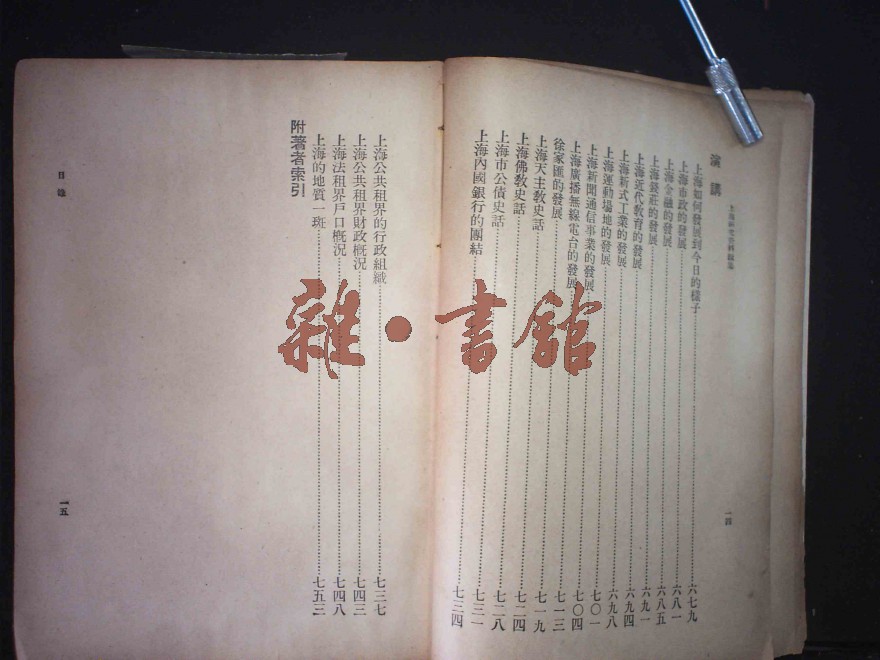 上海研究資料續集
一四
演講
上海如何發展到今日的樣子……六七九
上海市政的發展……六八一
上海金融的發展……六八五
上海錢莊的發展……六九一
上海近代教育的發展……六九四
上海新式工業的發展……六九八
上海運動場地的發展……七〇一
上海新聞通信事業的發展……七〇四
上海廣播無線電台的發展……七一三
徐家匯的發展……七一九
上海天主教史話……七二四
上海佛教史話……七二八
上海市公債史話……七三一
上海內國銀行的團結……七三四
上海公共租界的行政組織……七三七
上海公共租界財政概況……七四三
上海法租界戶口概況……七四八
上海的地質一斑……七五三
附著者索引
目錄
一五
雜·書館